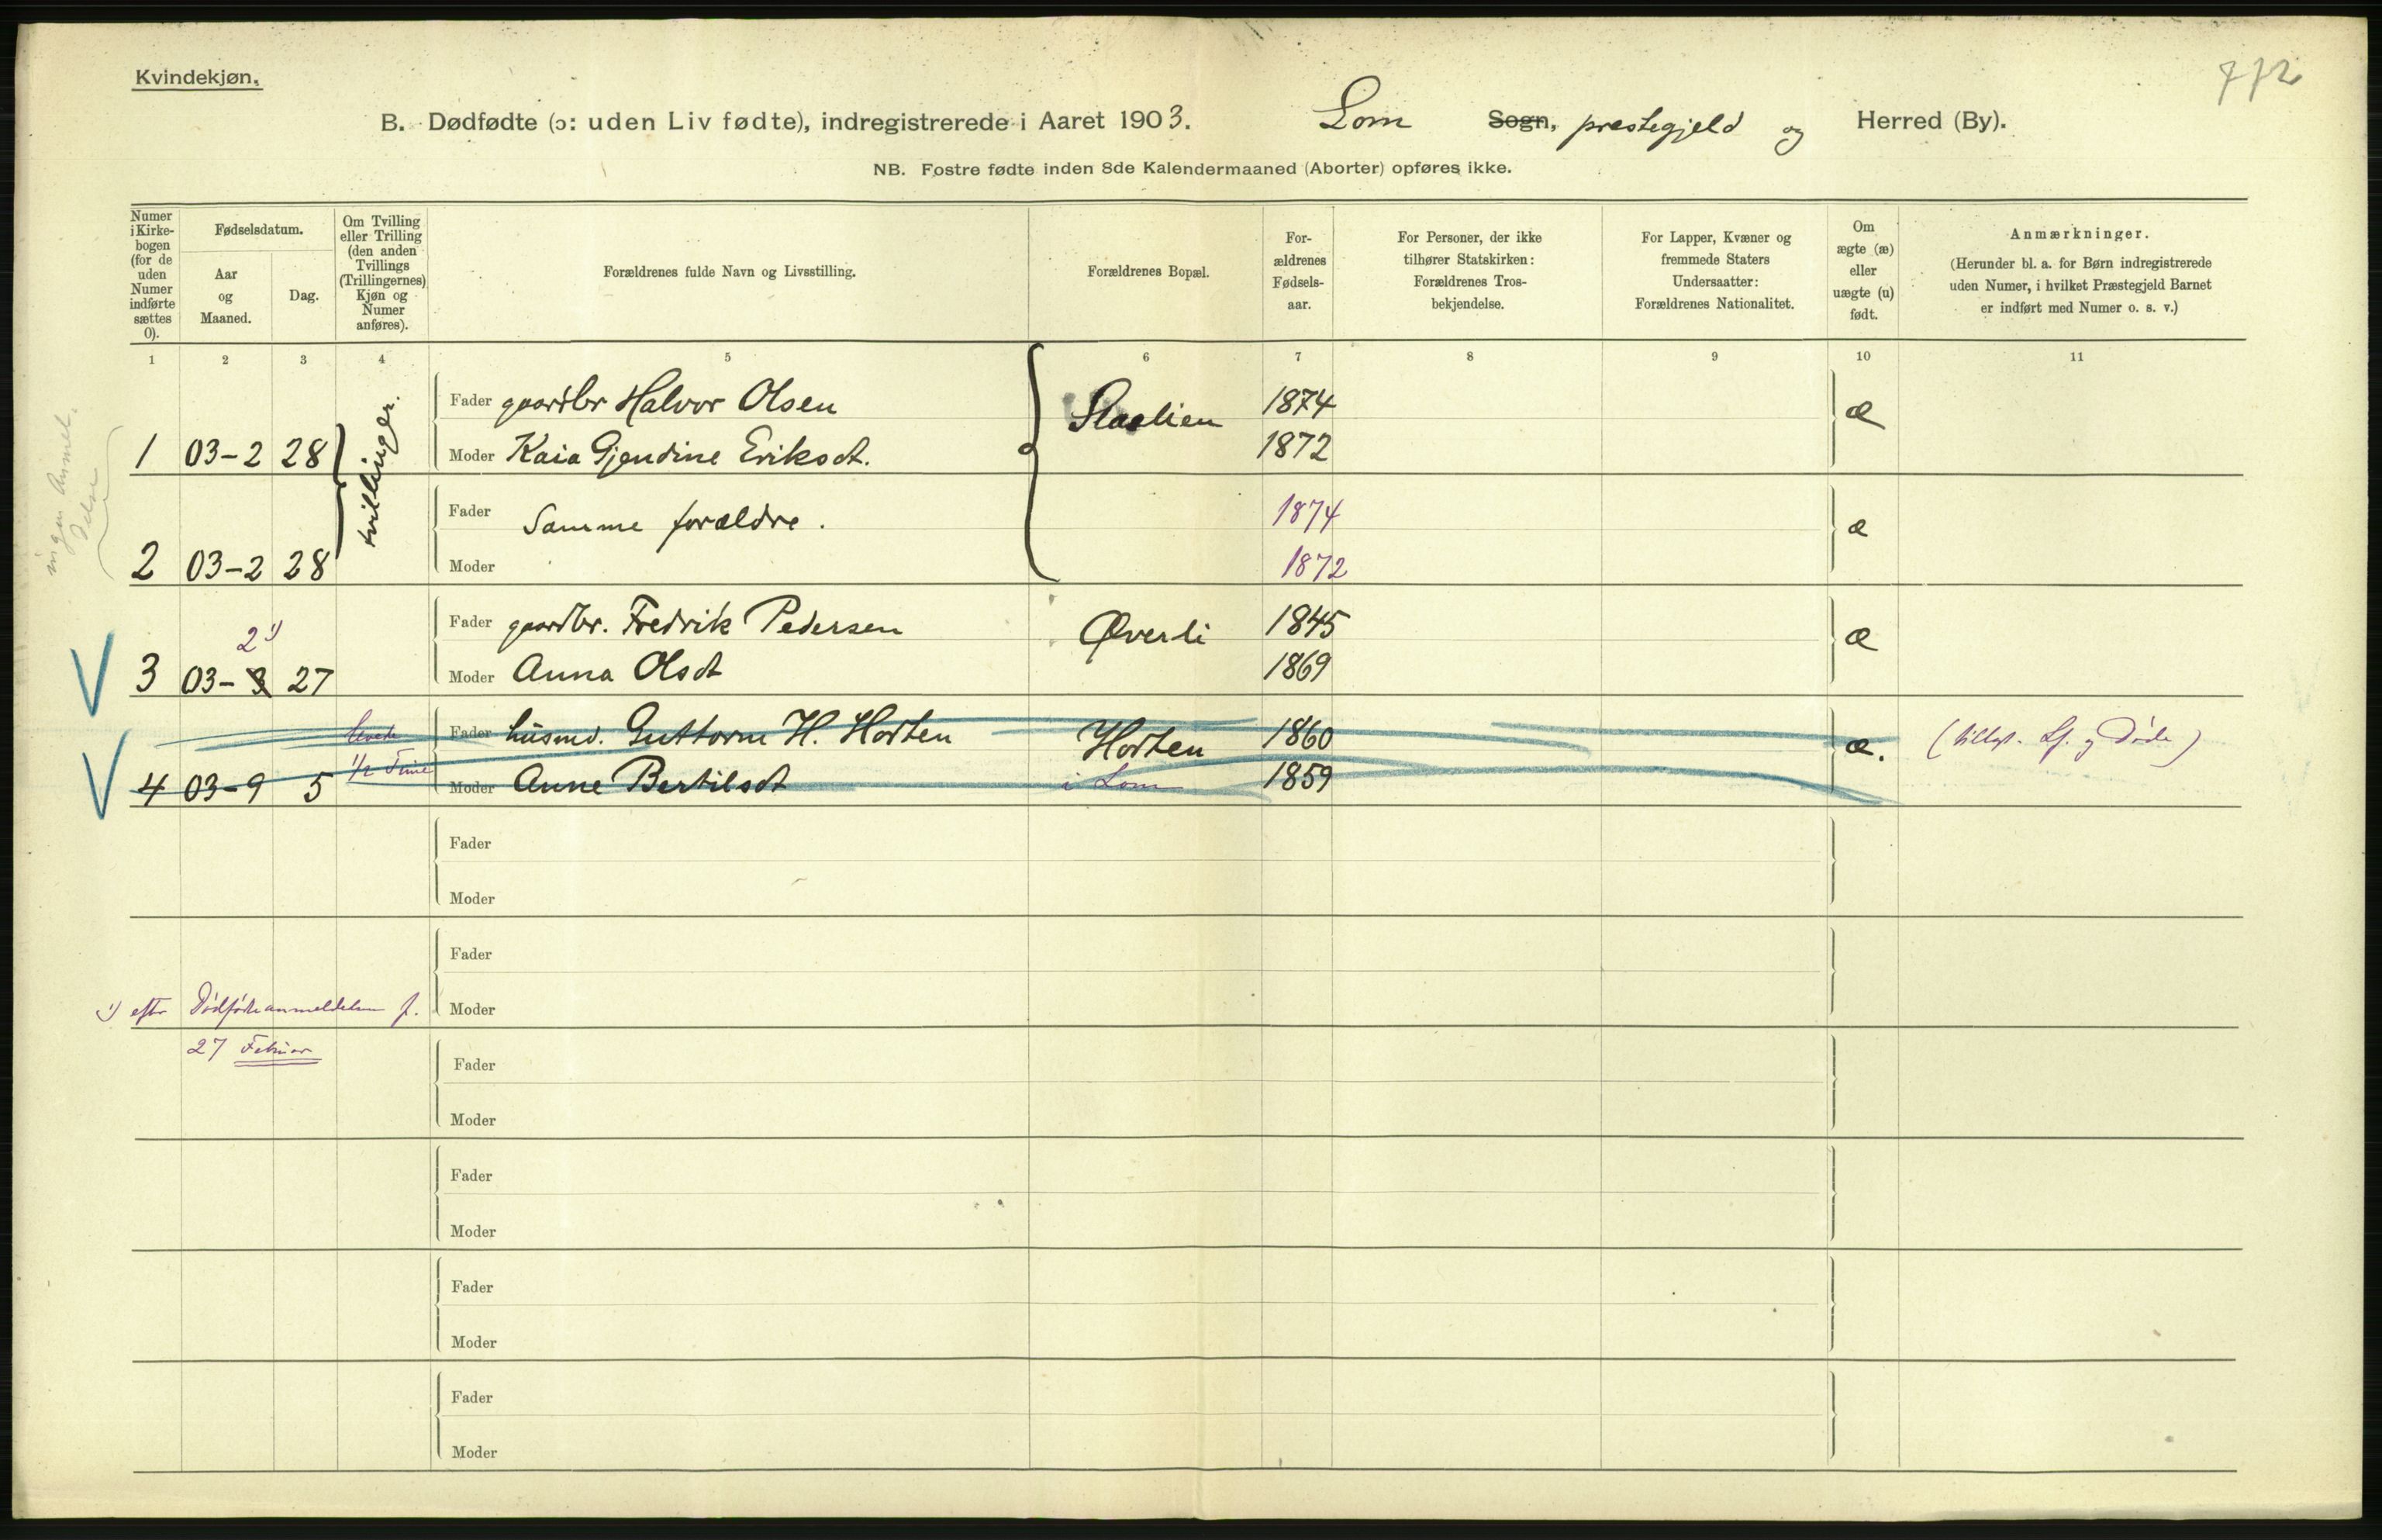 Kvindekjøn.
772
B. Dødfødte (ɔ: uden Liv fødte), indregistrerede i Aaret 1903. Lom Sogn, prestegjeld og Herred (By).
NB. Fostre fødte inden 8de Kalendermaaned (Aborter) opføres ikke.
Numer i Kirke-bogen (for de uden Numer indførte sættes 0).
Fødselsdatum.
Aar og Maaned.
Dag.
Om Tvilling eller Trilling (den anden Tvillings (Trillingernes) Kjøn og Numer anføres).
Forældrenes fulde Navn og Livsstilling.
Forældrenes Bopæl.
For-ældrenes Fødsels-aar.
For Personer, der ikke tilhører Statskirken: Forældrenes Tros-bekjendelse.
For Lapper, Kvæner og fremmede Staters Undersaatter: Forældrenes Nationalitet.
Om ægte (æ) eller uægte (u) født.
Anmærkninger.
(Herunder bl. a. for Børn indregistrerede uden Numer, i hvilket Præstegjeld Barnet er indført med Numer o. s. v.)
1 2 3 4 5 6 7 8 9 10 11
ingen Anmeldelse
tvillinger.
Fader gaardbr Halvor Olsen 1874 æ
1 03-2 28 Moder Kaia Gjendine Eriksdt. 1872
Fader Samme forældre. 1874 æ
2 03-2 28 Moder 1872
Fader gaardbr. Fredrik Pedersen Øverli 1845 æ
2¹)
3 03-3 27 Moder Anna Olsdt 1869
levede Fader husmd. Guttorm H. Horten Horten 1860 æ.
4 03-9 5 1/2 Time Moder Anne Bertilsdt i Lom 1859
Fader
Moder
Fader
¹) eftr Dødfødtanmeldelsen f. Moder
27 Februar
Fader
Moder
Fader
Moder
Fader
Moder
Fader
Moder